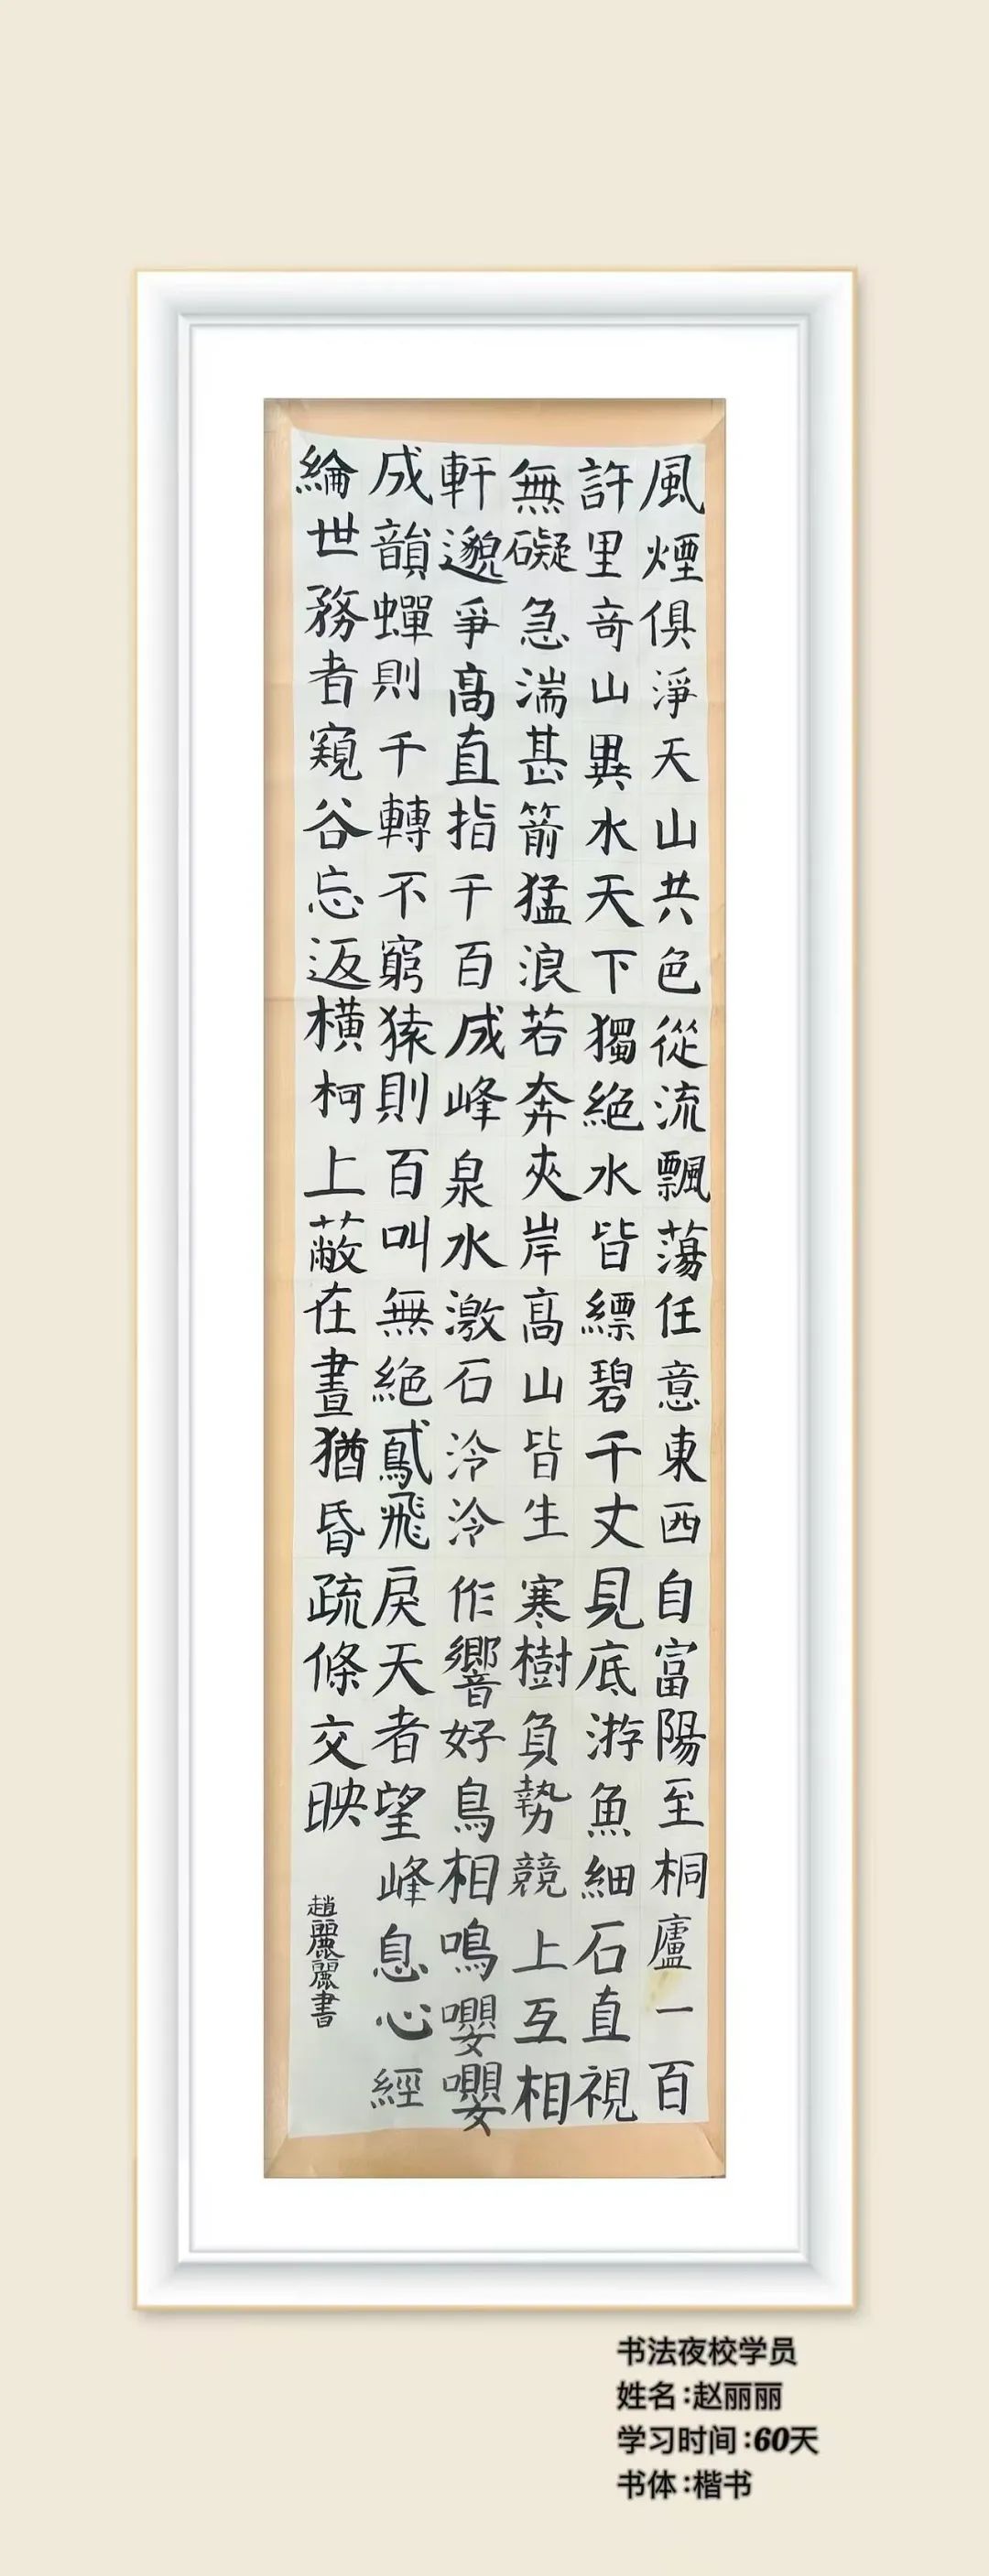 風煙俱淨天山共色從流飄蕩任意東西自富陽至桐廬一百
許里奇山異水天下獨絕水皆縹碧千丈見底游魚細石直視
無礙急湍甚箭猛浪若奔夾岸高山皆生寒樹負勢競上互相
軒邈爭高直指千百成峰泉水激石泠泠作響好鳥相鳴嚶嚶
成韻蟬則千轉不窮猿則百叫無絕鳶飛戾天者望峰息心經
綸世務者窺谷忘返橫柯上蔽在晝猶昏疏條交映
趙麗麗書
书法夜校学员
姓名:赵丽丽
学习时间:60天
书体:楷书